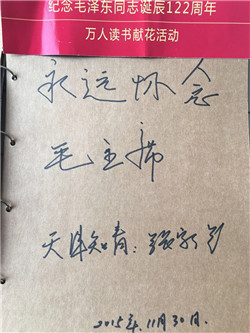 纪念毛泽东同志诞辰122周年
万人读书献花活动
永远怀念
毛主席
天津知青：张
2015年.11月30日.